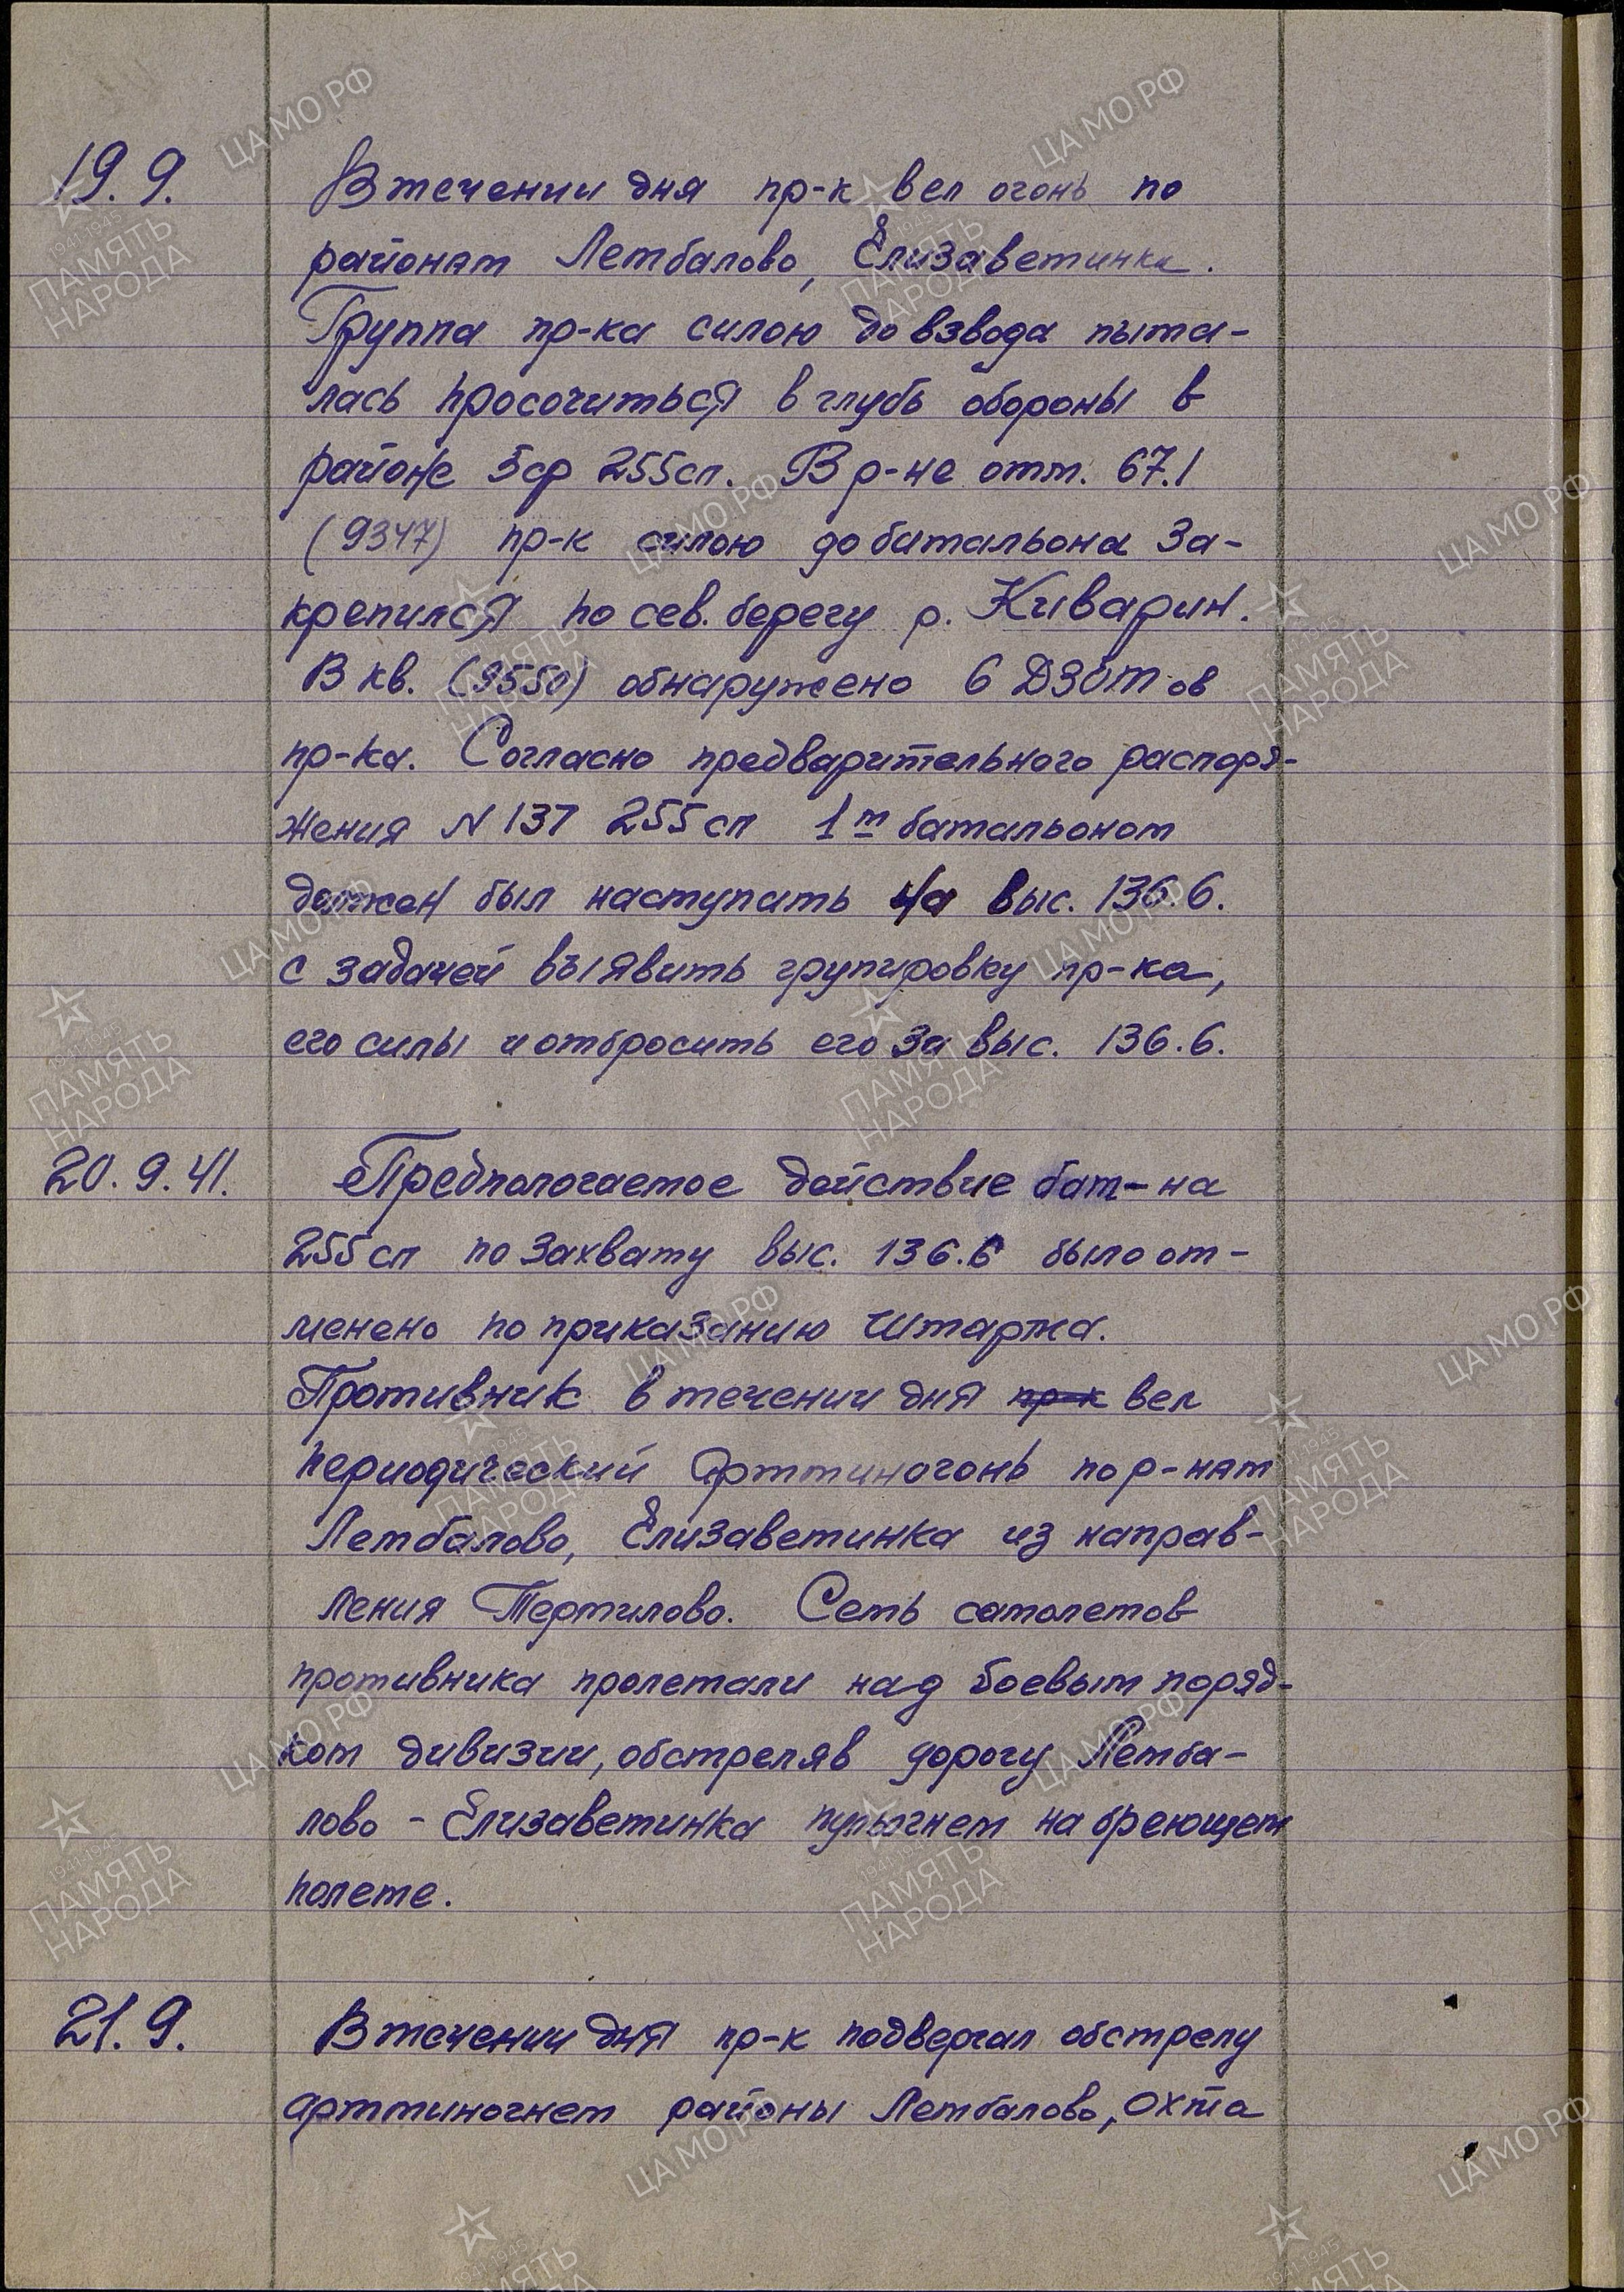 19.9. В течении дня пр-к вел огонь по
районам Лембалово, Елизаветинка.
Группа пр-ка силою до взвода пыта-
лась просочиться в глубь обороны в
районе 5ср 255сп. В р-не отм. 67.1
(9347) пр-к силою до батальона За-
крепился по сев. берегу р. Киварин.
В кв. (9550) обнаружено 6 ДЗОТ ов
пр-ка. Согласно предварительного распоря-
жения N 137 255 сп 1м батальоном
должен был наступать на выс. 136.6.
с задачей выявить групировку пр-ка,
его силы и отбросить его за выс. 136.6.
20.9.41. Предпологаемое действие бат-на
255 сп по Захвату выс. 136.6 было от-
менено по приказанию Штарма.
Противник в течении дня пр-к вел
периодический артминогонь по р-нам
Лембалово, Елизаветинка из направ-
ления Термилово. Семь самолетов
противника пролетали над боевым поряд-
ком дивизии, обстреляв дорогу Лемба-
лово - Елизаветинка пульогнем на бреющем
полете.
21.9. В течении дня пр-к подвергал обстрелу
артминогнем районы Лембалово, Охта
ЦА МО РФ
1941-1945
ПАМЯТЬ
НАРОДА